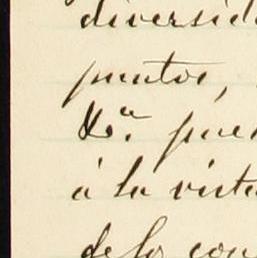 diversid
puntos,
&ª. pue
á la vista
de lo con